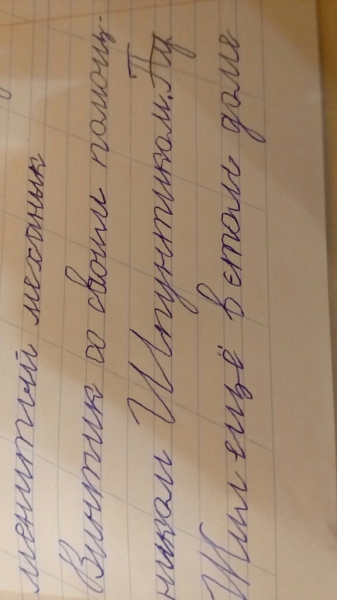 менитый механик
Винтик со своим помощ-
ником Шпунтиком.
Жил ещё в этом доме